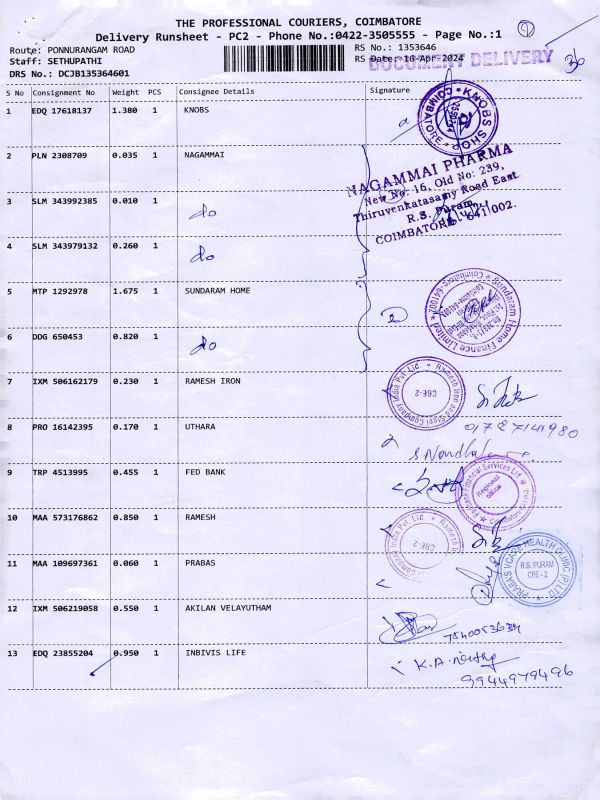 THE PROFESSIONAL COURIERS, COIMBATORE
Delivery Runsheet - PC2 - Phone No.:0422-3505555 - Page No.:1
1
Route: PONNURANGAM ROAD
RS No.: 1353646
Staff: SETHUPATHI
RS Date: 16-Apr-2024
DOCUMENT DELIVERY
DRS No.: DCJB135364601
S No Consignment No Weight PCS Consignee Details Signature
1 EDQ 17618137 1.380 1 KNOBS
KNOBS SHOP COIMBATORE
2 PLN 2308709 0.035 1 NAGAMMAI
NAGAMMAI PHARMA
New No: 16, Old No: 239,
Thiruvenkatasamy Road East
R.S. Puram,
COIMBATORE - 641 002.
3 SLM 343992385 0.010 1 do
4 SLM 343979132 0.260 1 do
5 MTP 1292978 1.675 1 SUNDARAM HOME
2
Sundaram Home Finance Limited Coimbatore-641002
6 DDG 650453 0.820 1 do
7 IXM 506162179 0.230 1 RAMESH IRON
Ramesh Iron and Steel Company India Pvt. Ltd.
CBE-2
8 PRO 16142395 0.170 1 UTHARA
9 TRP 4513995 0.455 1 FED BANK
Financial Services Ltd
Regional Office
10 MAA 573176862 0.850 1 RAMESH
CBE-2
11 MAA 109697361 0.060 1 PRABAS
PRABAS VCARE HEALTH CLINIC (P) LTD
R.S. PURAM
CBE-2
12 IXM 506219058 0.550 1 AKILAN VELAYUTHAM
13 EDQ 23855204 0.950 1 INBIVIS LIFE
9944979496